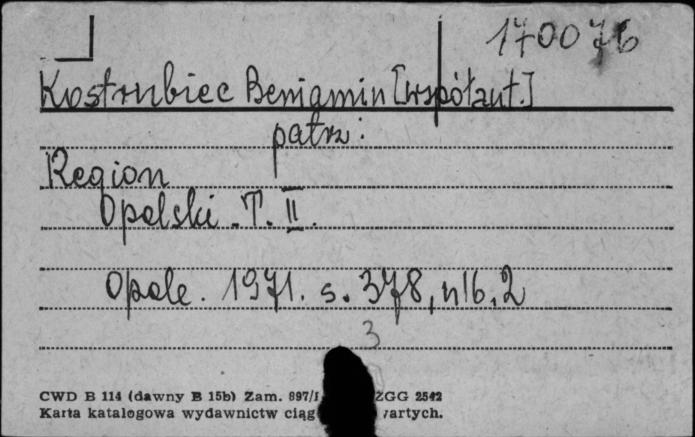 170076
Kostrubiec Beniamin [współaut.]
patrz:
Region
Opolski. T. II.
Opole. 1971. s. 378, nlb. 2
3
CWD B 114 (dawny B 15b) Zam. 897/1 ZGG 2542
Karta katalogowa wydawnictw ciąg wartych.